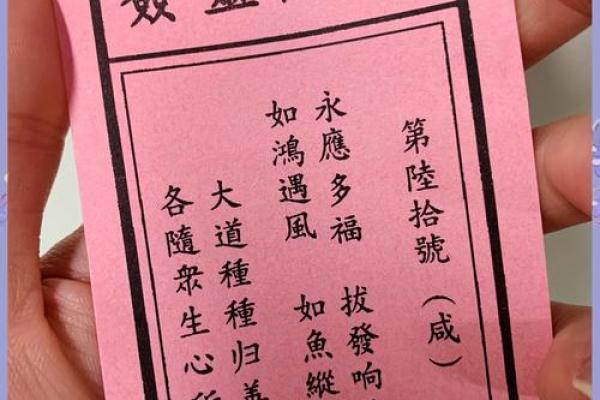 第陸拾號（咸）
永應多福 拔發响
如鴻遇風 如魚縱
大道種種归善
各隨眾生心所